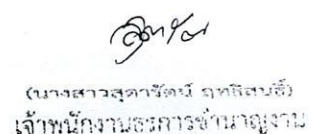 (นางสาวสุดารัตน์ ฤทธิสนธิ์)
เจ้าพนักงานธุรการชำนาญงาน